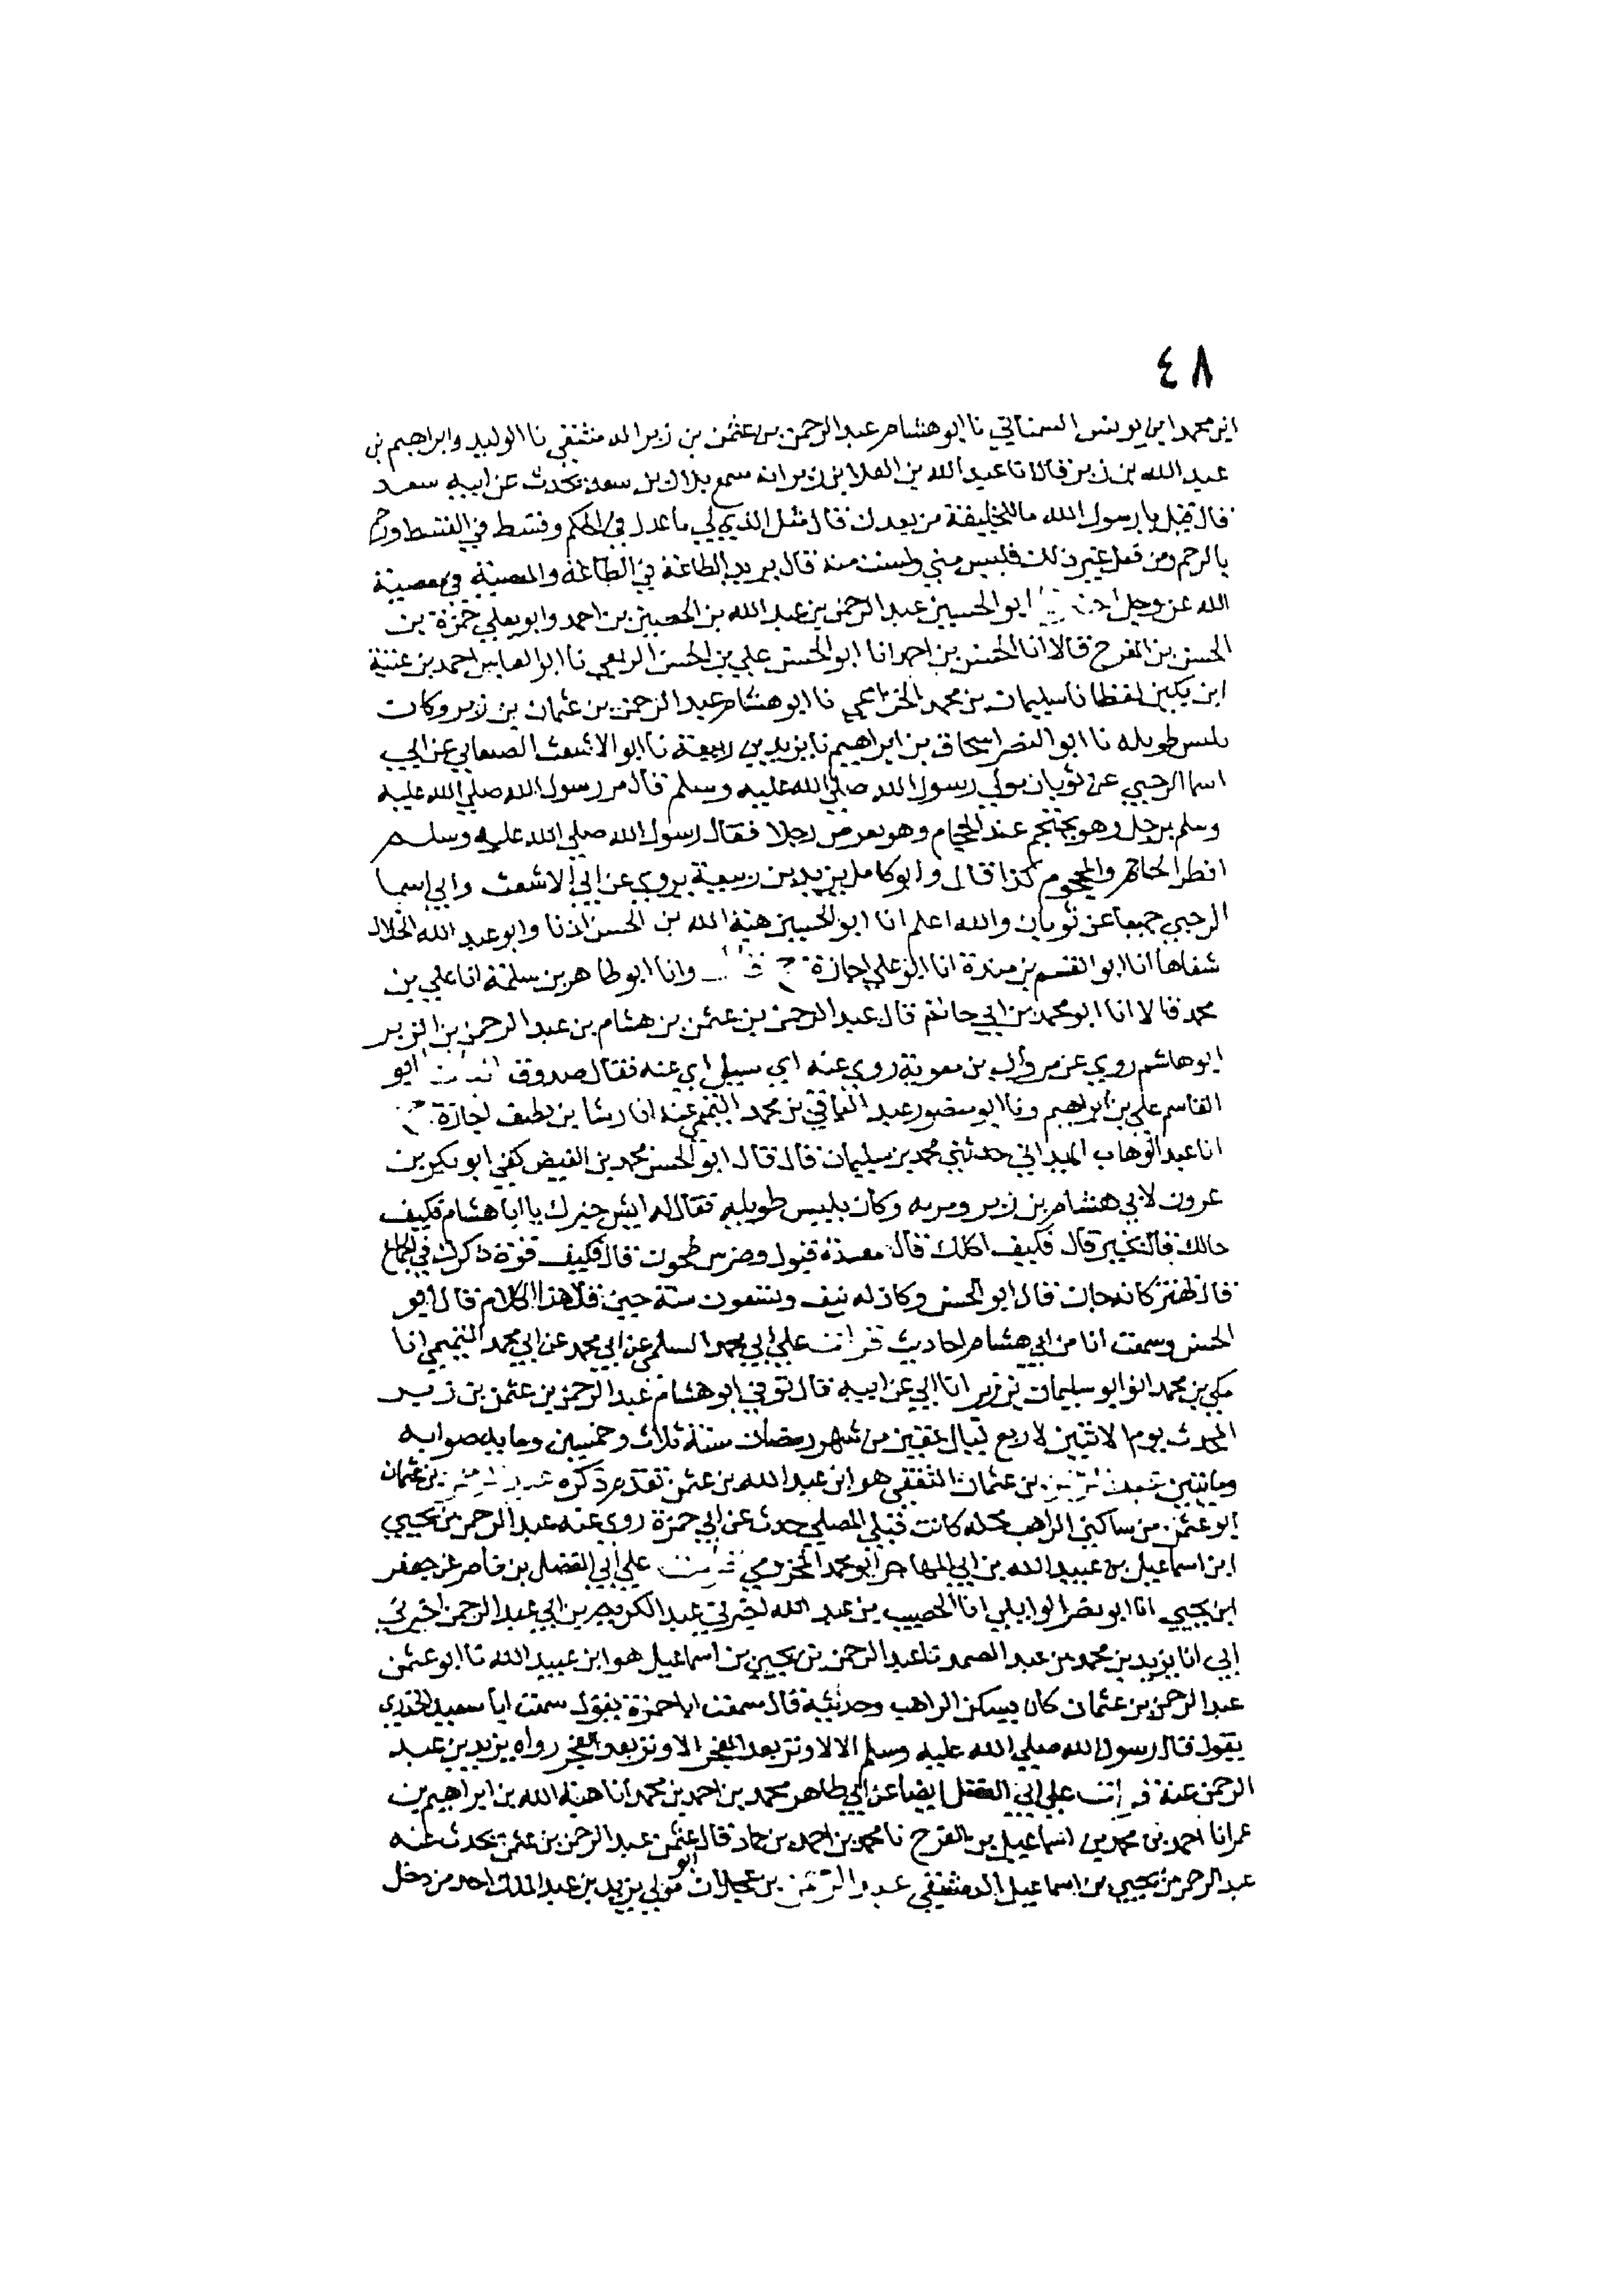 ٤٨
ابن محمد ابن يونس السمناني نا ابو هشام عبد الرحمن بن عثمن بن زبر الدمشقي نا الوليد وابراهيم بن
عبد الله بن زبر قالا نا عبد الله بن العلا بن زبر انه سمع بلال بن سعد يحدث عن ابيه سعد
قال قيل يا رسول الله ما للخليفة من بعدك قال مثل الذي لي ما عدل في الحكم وقسط في القسط ورحم
بالرحم ومن فعل غير ذلك فليس مني ولست منه قال يريد الطاعة في الطاعة والمعصية في معصية
الله عز وجل ابو الحسين عبد الرحمن بن عبد الله بن الحسين بن احمد وابو يعلي حمزة بن
الحسن بن المفرج قالا انا الحسن بن احمد انا ابو الحسن علي بن الحسن الربعي نا ابو العباس احمد بن عتبة
ابن مكين لفظا نا سليمان بن محمد الخزاعي نا ابو هشام عبد الرحمن بن عثمان بن زبر وكان
يلبس طويله نا ابو النضر اسحاق بن ابراهيم نا يزيد بن ربيعة نا ابو الاشعث الصنعاني عن ابي
اسما الرحبي عن ثوبان مولي رسول الله صلي الله عليه وسلم قال مر رسول الله صلي الله عليه
وسلم برجل وهو يحتجم عند الحجام وهو يعرض رجلا فقال رسول الله صلي الله عليه وسلم
افطر الحاجم والمحجوم كذا قال وابو كامل يزيد بن ربيعة يروي عن ابي الاشعث وابي اسما
الرحبي جميعا عن ثوبان والله اعلم انا ابو الحسين هبة الله بن الحسن اذنا وابو عبد الله الخلال
شفاها انا ابو القسم بن مندة انا ابو علي اجازة ح وانا ابو طاهر بن سلمة انا علي بن
محمد قالا انا ابو محمد بن ابي حاتم قال عبد الرحمن بن عثمن بن هشام بن عبد الرحمن بن الزبر
ابو هاشم روي عن مروان بن معوية روي عنه ابي سيل ابي عنه فقال صدوق ابو
القاسم علي بن ابراهيم ونا ابو منصور عبد الباقي بن محمد التميمي عنه انا رشا بن نظيف اجازة
انا عبد الوهاب الميداني حدثني محمد بن سليمان قال قال ابو الحسن محمد بن الفيض كفي ابو بكير بن
عرون لابي هشام بن زبر ومر به وكان يلبس طويله فقال له ايش خبرك يا ابا هشام فكيف
حالك قال بخير قال فكيف اكلك قال معدة قبول وضرس طحون قال فكيف قوة ذكرك في الجماع
قال يهتز كانه جان قال ابو الحسن وكان له نيف وتسعون سنة حين قال هذا الكلام قال ابو
الحسن وسمعت انا من ابي هشام احاديث قرات علي ابي محمد السلمي عن ابي محمد عن ابي محمد التميمي انا
مكي بن محمد انا ابو سليمان بن زبر انا ابي عن ابيه قال توفي ابو هشام عبد الرحمن بن عثمن بن زبر
المحدث يوم الاثنين لاربع ليال بقين من شهر رمضان سنة ثلاث وخمسين ومايه صوابه
ومايتين بن عثمان الثقفي هو ابن عبد الله بن عثمن تقدم ذكره بن عثمان
ابو عثمن من ساكني الراهب محله كانت قبلي المصلي حدث عن ابي حمزة روي عنه عبد الرحمن بن يحيي
ابن اسماعيل بن عبيد الله بن ابي المهاجر ابو محمد المخزومي علي ابي الفضل بن ناصر عن جعفر
ابن يحيي انا ابو نصر الوايلي انا الخصيب بن عبد الله اخبرني عبد الكريم بن ابي عبد الرحمن اخبرني
ابي انا يزيد بن محمد بن عبد الصمد نا عبد الرحمن بن يحيي بن اسماعيل هو ابن عبيد الله نا ابو عثمن
عبد الرحمن بن عثمان كان يسكن الراهب وحديثه قال سمعت ابا حمزة يقول سمعت ابا سعيد الخدري
يقول قال رسول الله صلي الله عليه وسلم الا لا وتر بعد الفجر الا وتر بعد الفجر رواه يزيد بن عبد
الرحمن عنه قرات علي ابي الفضل ايضا عن ابي طاهر محمد بن احمد بن محمد انا هبة الله بن ابراهيم بن
عمر انا احمد بن محمد بن اسماعيل بن الفرج نا محمد بن احمد بن حماد قال عثمن عبد الرحمن بن عثمن يحدث عنه
ابو
عبد الرحمن بن يحيي بن اسماعيل الدمشقي عبد الرحمن بن عجلان مولي يزيد بن عبد الملك احد من دخل